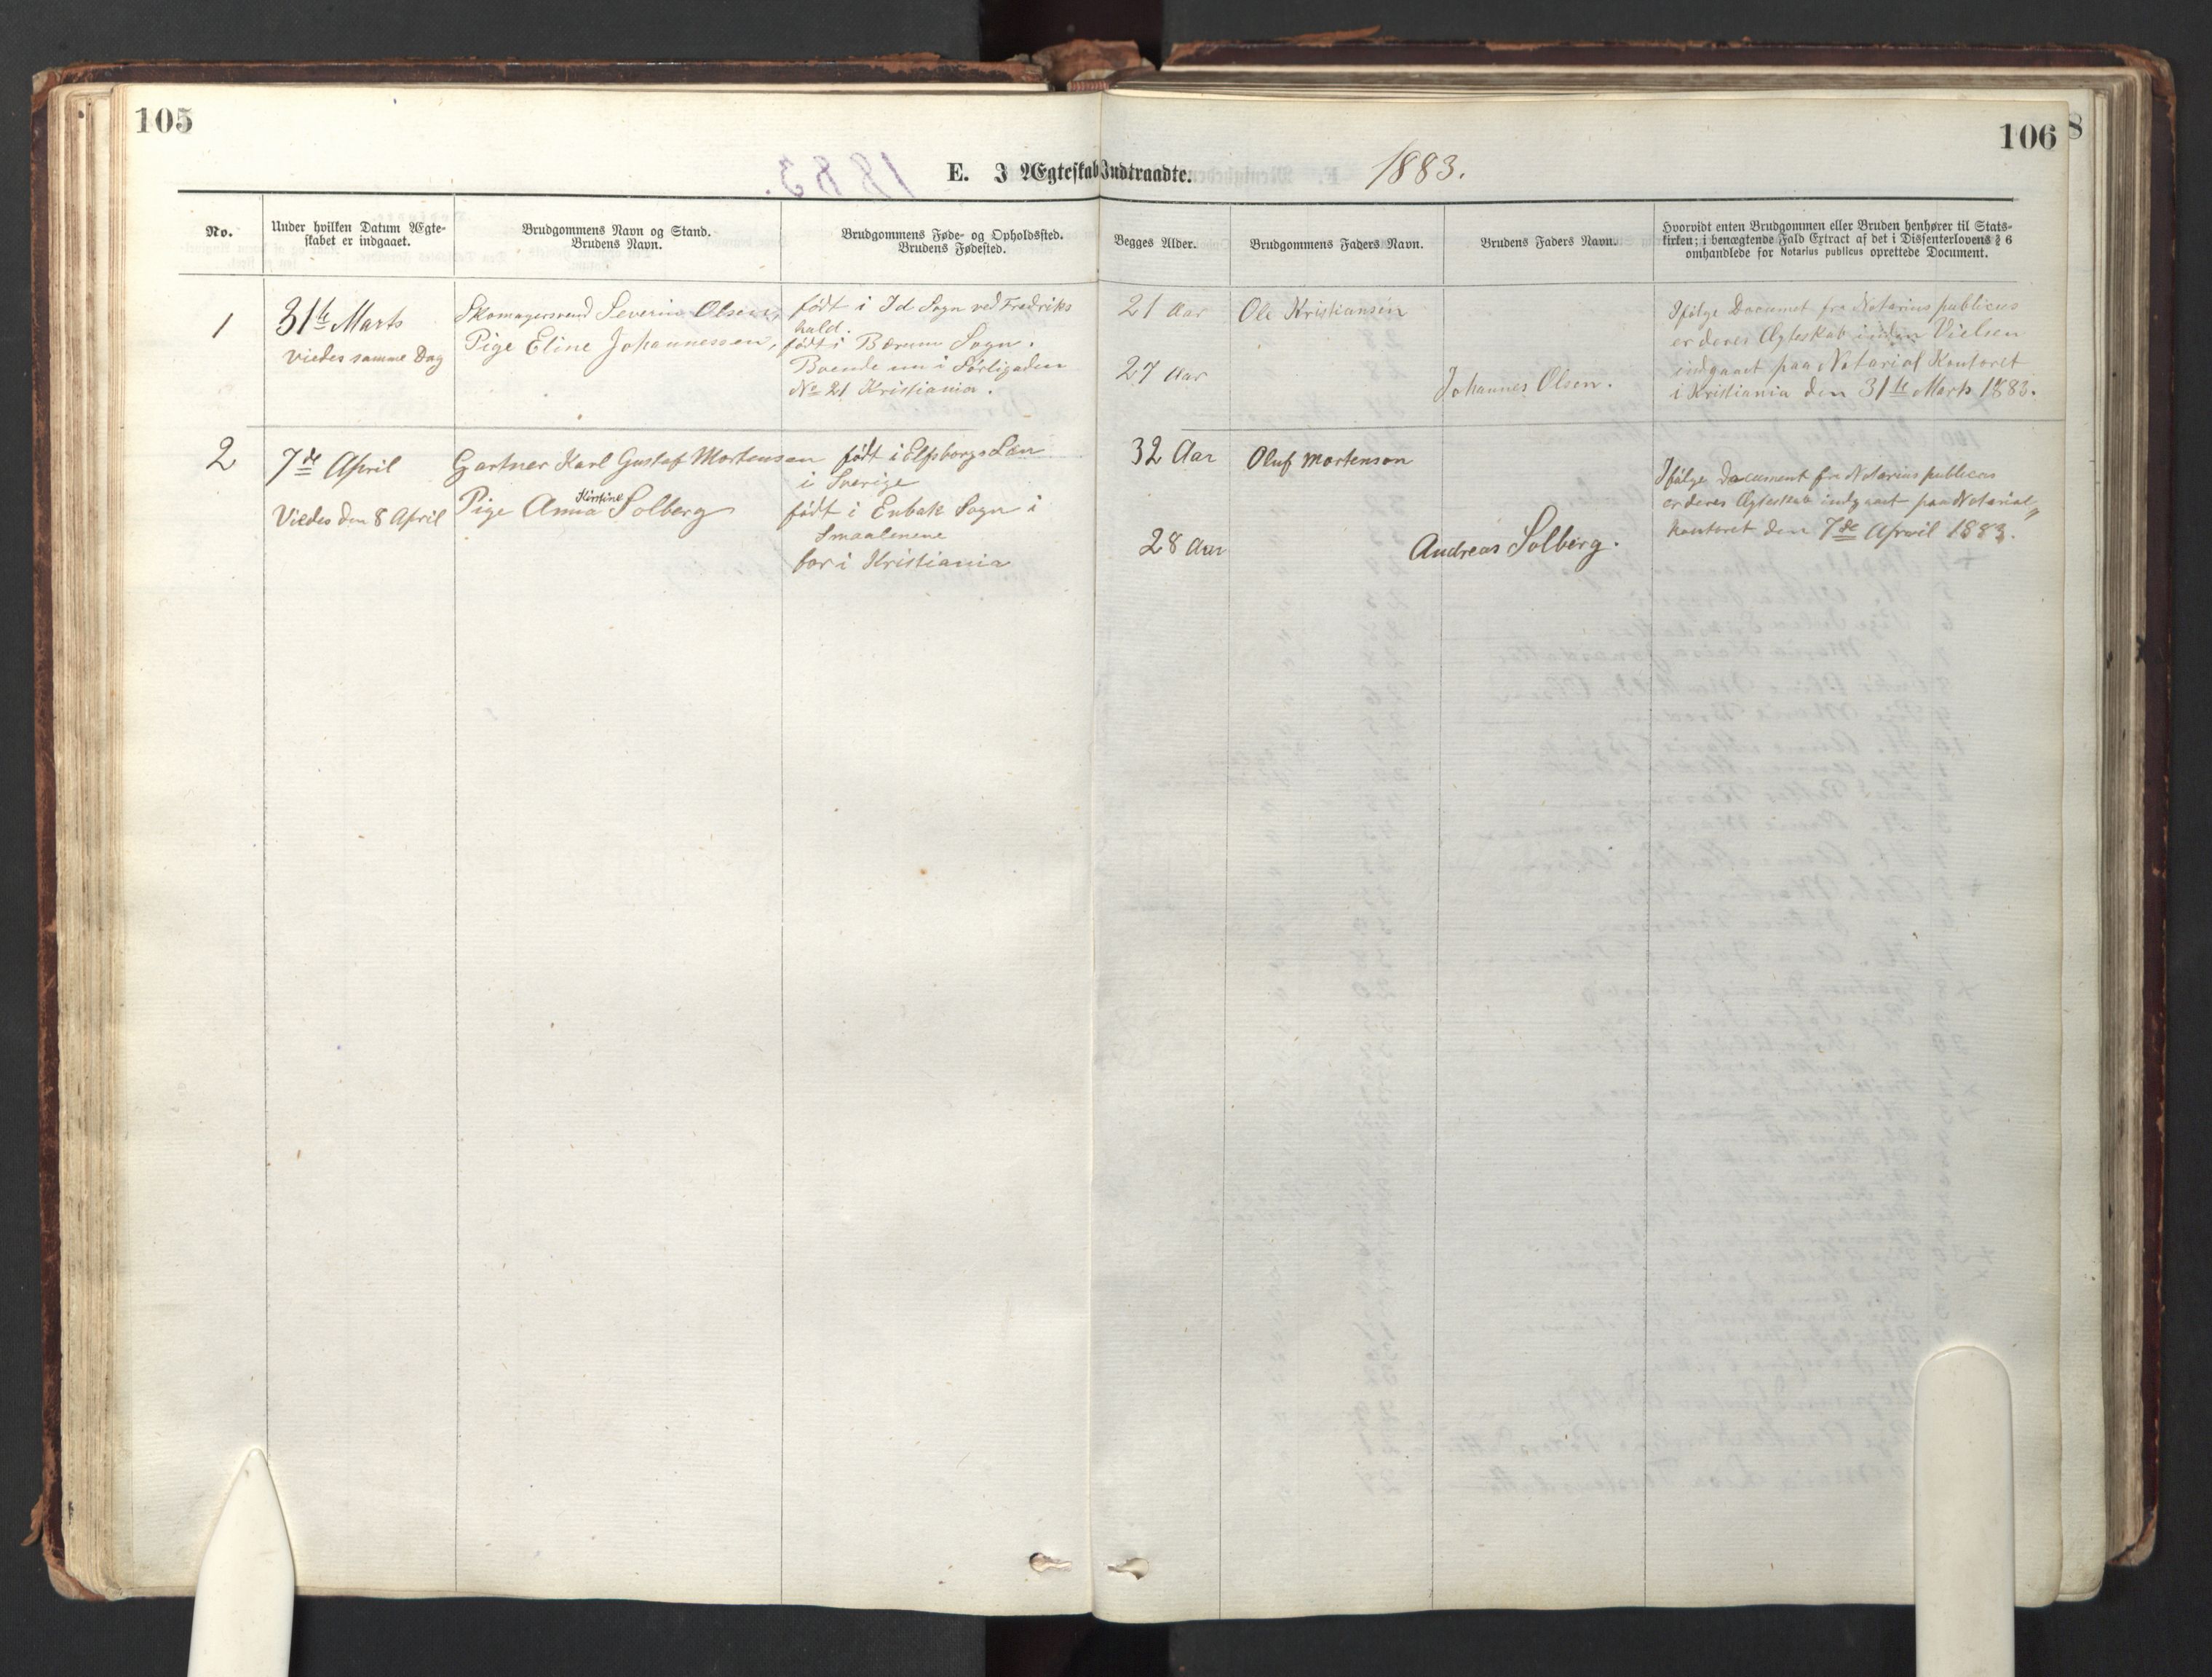 105
106
8
E. I Ægteskab Indtraadte. 1883.
No.
Under hvilken Datum Ægte-
skabet er indgaaet.
Brudgommens Navn og Stand.
Brudens Navn.
Brudgommens Føde- og Opholdssted.
Brudens Fødested.
Begges Alder.
Brudgommens Faders Navn.
Brudens Faders Navn.
Hvorvidt enten Brudgommen eller Bruden henhører til Stats-
kirken; i benægtende Fald Extract af det i Dissenterlovens § 6
omhandlede for Notarius publicus oprettede Document.
1
31te Marts
Viedes samme Dag
Skomagersvend Severin Olsen,
Pige Eline Johannessen,
født i Id Sogn ved Fredriks
hald.
født i Bærum Sogn.
Boende nu i
No 21 Kristiania.
21 Aar
27 Aar
Ole Kristiansen
Johannes Olsen.
Ifølge Document fra Notarius publicus
er deres Ægteskab inden Vielsen
indgaaet paa Notarial Kontoret
i Kristiania den 31te Marts 1883.
2
7de April
Viedes den 8 April
Gartner Karl Gustaf Mortensen
Kirstine
Pige Anna Solberg
født i Elfsborgs Län
i Sverige
født i Enbak Sogn i
Smaalenene
bor i Kristiania
32 Aar
28 Aar
Oluf Mortenson
Andreas Solberg.
Ifølge Document fra Notarius publicus
er deres Ægteskab indgaaet paa Notarial
kontoret den 7de April 1883.